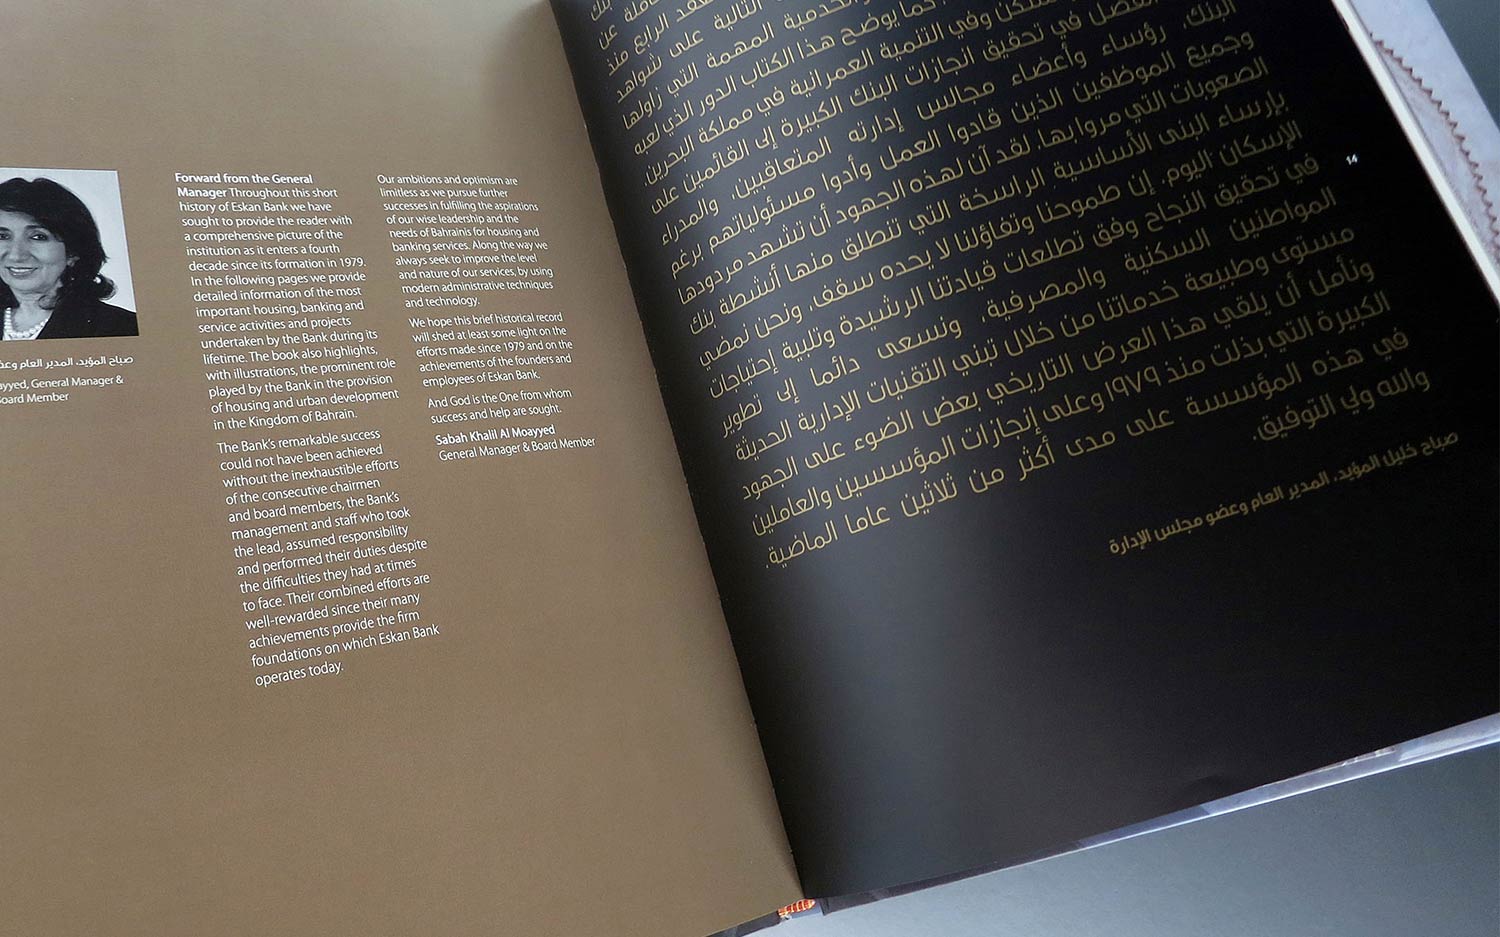 صباح المؤيد، المدير العام وعضو
ayyed, General Manager &
Board Member
Forward from the General
Manager Throughout this short
history of Eskan Bank we have
sought to provide the reader with
a comprehensive picture of the
institution as it enters a fourth
decade since its formation in 1979.
In the following pages we provide
detailed information of the most
important housing, banking and
service activities and projects
undertaken by the Bank during its
lifetime. The book also highlights,
with illustrations, the prominent role
played by the Bank in the provision
of housing and urban development
in the Kingdom of Bahrain.
The Bank's remarkable success
could not have been achieved
without the inexhaustible efforts
of the consecutive chairmen
and board members, the Bank's
management and staff who took
the lead, assumed responsibility
and performed their duties despite
the difficulties they had at times
to face. Their combined efforts are
well-rewarded since their many
achievements provide the firm
foundations on which Eskan Bank
operates today.
Our ambitions and optimism are
limitless as we pursue further
successes in fulfilling the aspirations
of our wise leadership and the
needs of Bahrainis for housing and
banking services. Along the way we
always seek to improve the level
and nature of our services, by using
modern administrative techniques
and technology.
We hope this brief historical record
will shed at least some light on the
efforts made since 1979 and on the
achievements of the founders and
employees of Eskan Bank.
And God is the One from whom
success and help are sought.
Sabah Khalil Al Moayyed
General Manager & Board Member
العقد الرابع منذ
التالية على شواهد
الخدمية المهمة التي زاولها
كما يوضح هذا الكتاب الدور الذي لعبه
السكن وفي التنمية العمرانية في مملكة البحرين.
الفضل في تحقيق انجازات البنك الكبيرة إلى القائمين على
البنك، رؤساء وأعضاء مجالس إدارته المتعاقبين، والمدراء
وجميع الموظفين الذين قادوا العمل وأدوا مسئولياتهم برغم
الصعوبات التي مروا بها. لقد آن لهذه الجهود أن تشهد مردودها
بإرساء البنى الأساسية الراسخة التي تنطلق منها أنشطة بنك
الإسكان اليوم. إن طموحنا وتفاؤلنا لا يحده سقف، ونحن نمضي
في تحقيق النجاح وفق تطلعات قيادتنا الرشيدة وتلبية إحتياجات
المواطنين السكنية والمصرفية، ونسعى دائما إلى تطوير
مستوى وطبيعة خدماتنا من خلال تبني التقنيات الإدارية الحديثة
ونأمل أن يلقي هذا العرض التاريخي بعض الضوء على الجهود
الكبيرة التي بذلت منذ ١٩٧٩ وعلى إنجازات المؤسسين والعاملين
في هذه المؤسسة على مدى أكثر من ثلاثين عاما الماضية.
والله ولي التوفيق.
صباح خليل المؤيد، المدير العام وعضو مجلس الإدارة
14